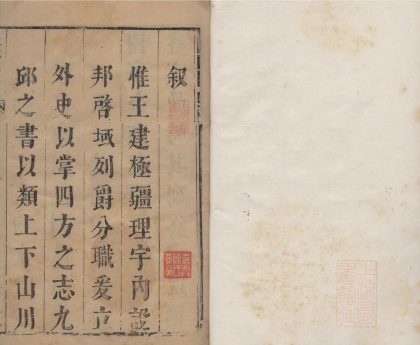 叙
惟王建極疆理宇内設
邦啓域列爵分職爰立
外史以掌四方之志九
邱之書以類上下山川